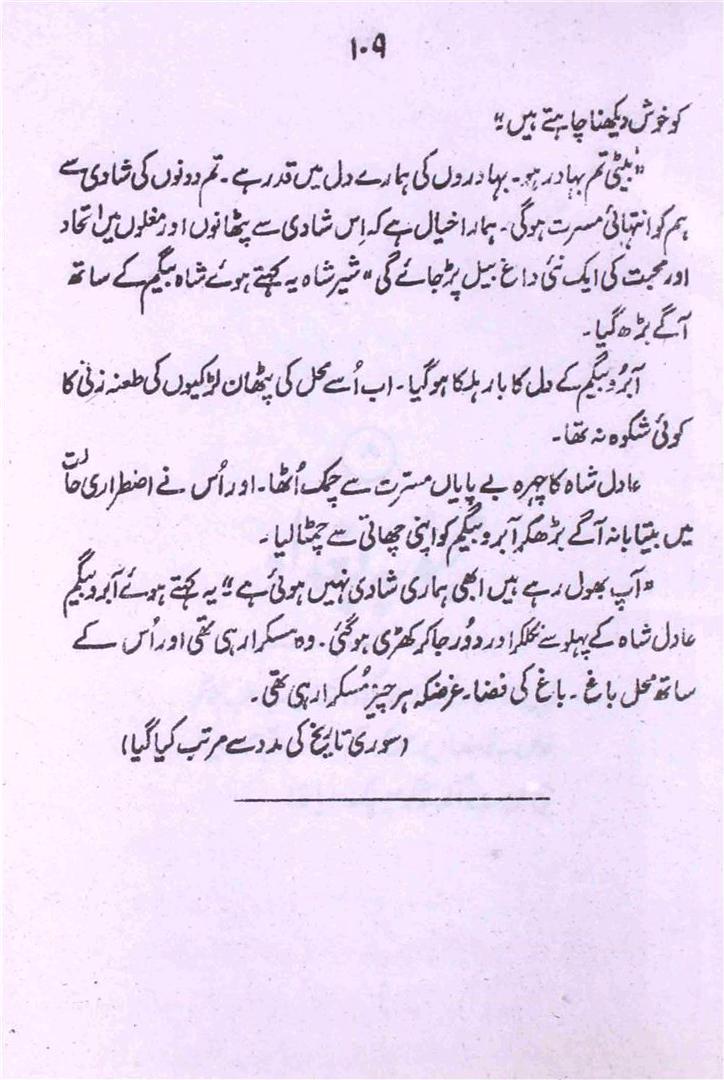 ۱۰۹
کو خوش دیکھنا چاہتے ہیں۔"
"بیٹی تم بہادر ہو۔ بہادروں کی ہمارے دل میں قدر ہے۔ تم دونوں کی شادی سے
ہم کو انتہائی مسرت ہوگی۔ ہمارا خیال ہے کہ اِس شادی سے پٹھانوں اور مغلوں میں اتحاد
اور محبت کی ایک نئی داغ بیل پڑ جائے گی" شیر شاہ یہ کہتے ہوئے شاہ بیگم کے ساتھ
آگے بڑھ گیا۔
آبرو بیگم کے دل کا بار ہلکا ہوگیا۔ اب اُسے محل کی پٹھان لڑکیوں کی طعنہ زنی کا
کوئی شکوہ نہ تھا۔
عادل شاہ کا چہرہ بے پایاں مسرّت سے چمک اُٹھا۔ اور اُس نے اضطراری حالت
میں بیتابانہ آگے بڑھکر آبرو بیگم کو اپنی چھاتی سے چمٹا لیا۔
"آپ بھول رہے ہیں ابھی ہماری شادی نہیں ہوئی ہے۔" یہ کہتے ہوئے آبرو بیگم
عادل شاہ کے پہلو سے نکلکر اور دُور جا کر کھڑی ہوگئی۔ وہ مسکرا رہی تھی اور اُس کے
ساتھ محل باغ۔ باغ کی فضا۔ غرضکہ ہر چیز مُسکرا رہی تھی۔
(سوری تاریخ کی مدد سے مرتب کیا گیا)